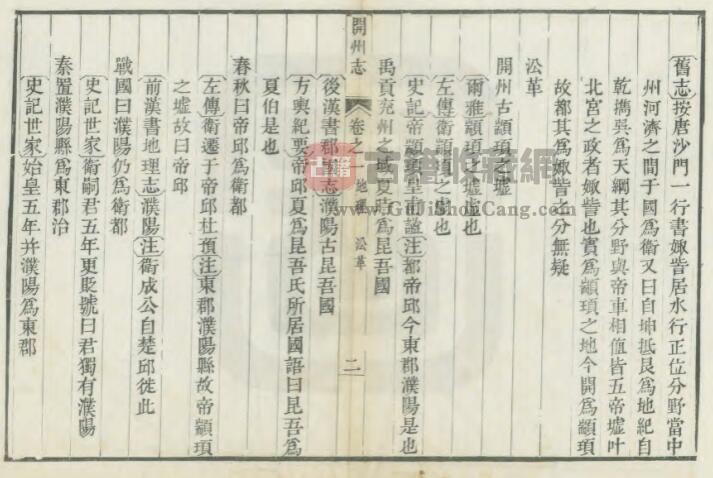 舊志按唐沙門一行書娵訾居水行正位分野當中
州河濟之間于國爲衛又曰自坤抵艮爲地紀自
乾擕巽爲天綱其分野與帝車相值皆五帝墟叶
北宮之政者娵訾也實爲顓頊之地今開爲顓頊
故都其爲娵訾之分無疑
沿革
開州古顓頊之墟
爾雅顓頊之墟虛也
左傳衛顓頊之虛也
史記帝顓頊皇甫謐注都帝邱今東郡濮陽是也
禹貢兗州之域夏時爲昆吾國
開州志
卷之一 地理 沿革
二
後漢書郡國志濮陽古昆吾國
方輿紀要帝邱夏爲昆吾氏所居國語曰昆吾爲
夏伯是也
春秋曰帝邱爲衛都
左傳衛遷于帝邱杜預注東郡濮陽縣故帝顓頊
之墟故曰帝邱
前漢書地理志濮陽注衛成公自楚邱徙此
戰國曰濮陽仍爲衛都
史記世家衛嗣君五年更貶號曰君獨有濮陽
秦置濮陽縣爲東郡治
史記世家始皇五年并濮陽爲東郡
古籍 古籍收藏網
www.GuJiShouCang.com